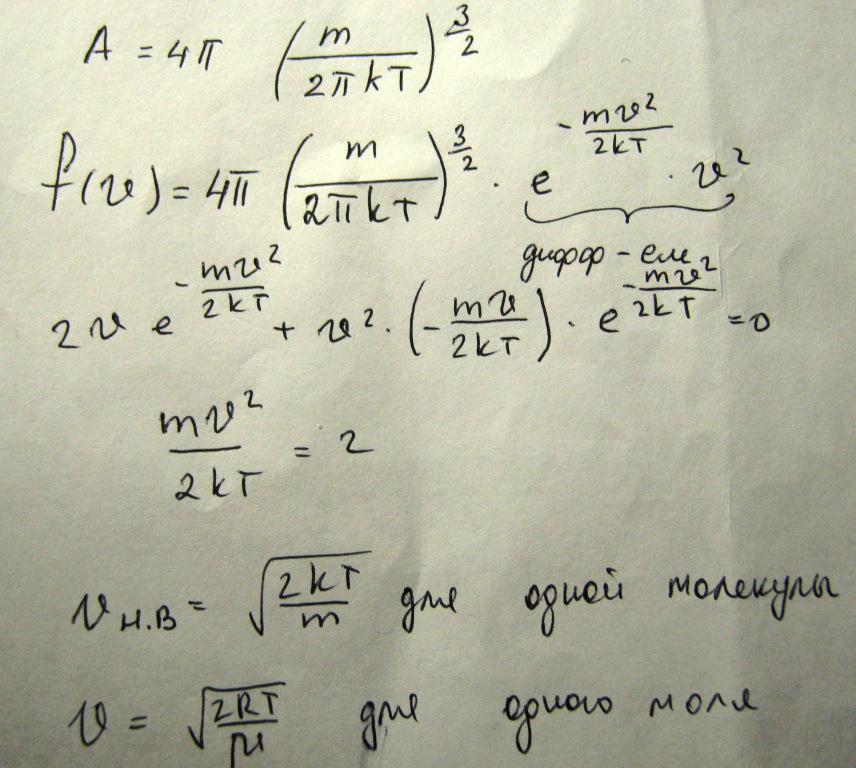 A = 4π (m / 2πkT)^(3/2)
f(v) = 4π (m / 2πkT)^(3/2) · e^(-mv²/2kT) · v²
дифф-ем
2v e^(-mv²/2kT) + v² · (-mv/2kT) · e^(-mv²/2kT) = 0
mv²/2kT = 2
v н.в = √(2kT/m) для одной молекулы
v = √(2RT/μ) для одного моля